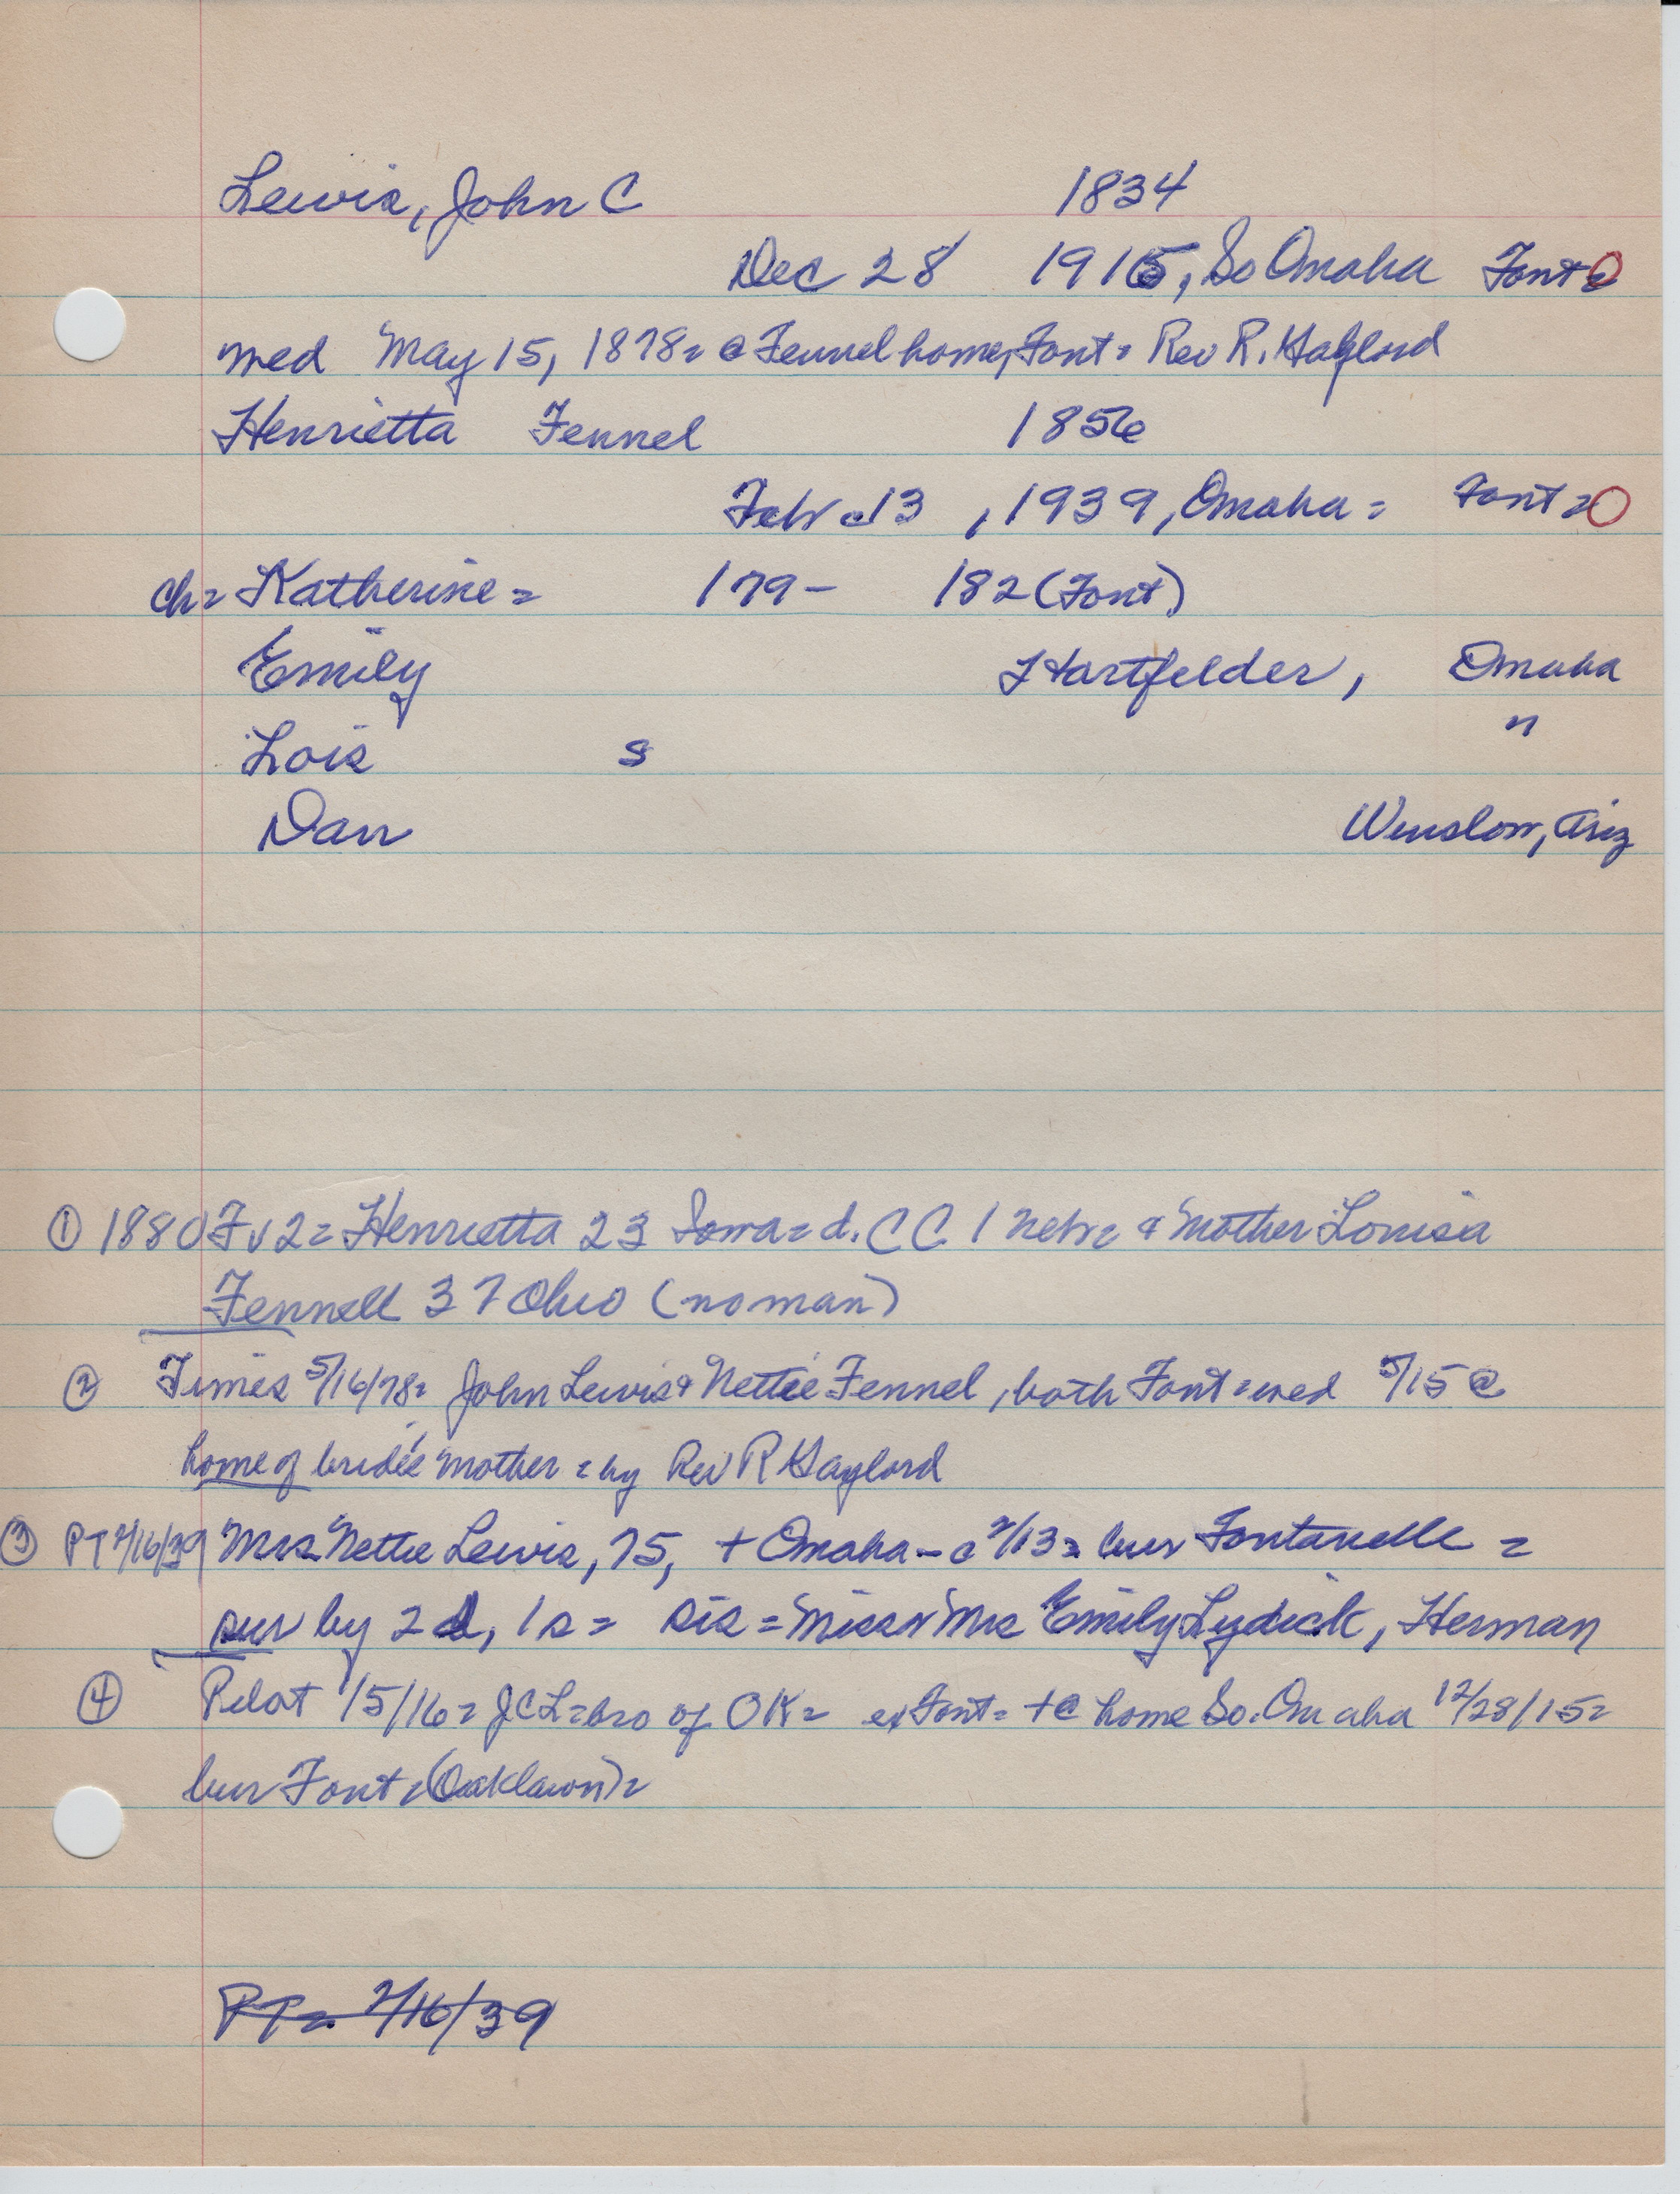 Lewis, John C 1834
Dec 28 1915, So Omaha Font=
wed May 15, 1878= @ Fennel home, Font= Rev R. Gaylord
Henrietta Fennel 1856
Feb c13, 1939, Omaha= Font=
ch= Katherine= 179- 182 (Font)
Emily Hartfelder, Omaha
Lois s "
Dan Winslow, Ariz
① 1880 Fv2= Henrietta 23 Iowa= d. CC 1 Neb= & mother Louisa
Fennell 37 Ohio (no man)
② Times 5/16/78= John Lewis & Nettie Fennel, both Font= wed 5/15 @
home of bride's mother= by Rev R Gaylord
③ PT 2/16/39 Mrs Nettie Lewis, 75, + Omaha - c 2/13= bur Fontanelle=
sur by 2d, 1s= sis= Mrs Emily Lydick, Herman
④ Pilot 1/5/16= JCL= bro of OK= ex Font= +@ home So. Omaha 12/28/15=
bur Font= (Oaklawn)=
PT= 2/16/39